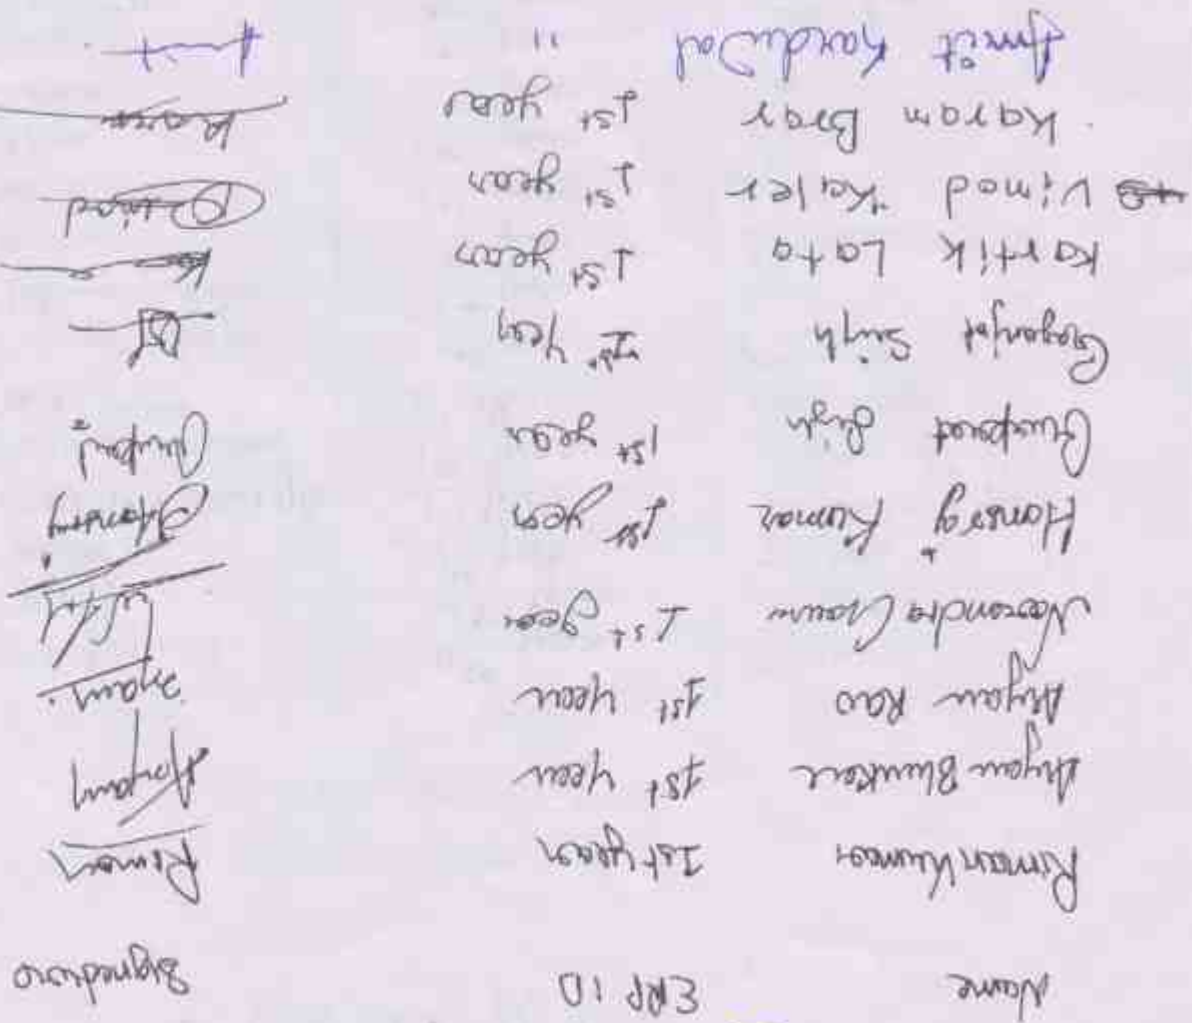 Name ERP ID Signature
Riman Kumar 1st year Riman
Aryan Bhunkar 1st year Aryan
Aryan Rao 1st year Aryan
Narendra 1st year
Hansraj Kumar 1st year Hansraj
Gurpreet Singh 1st year
Gaganjot Singh 1st year
Kartik Lata 1st year
Vimod Kaler 1st year Vimod
Karam Brar 1st year Karam
Amrit 11 Amrit